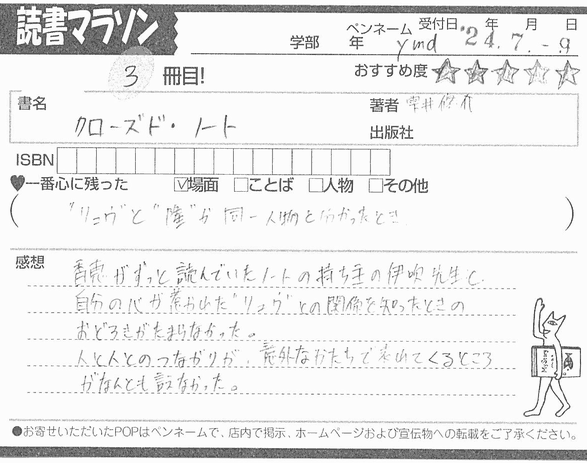 読書マラソン
学部 年 ペンネーム ymd 受付日 '24年 7月 -9日
3 冊目!
おすすめ度
書名 クローズド・ノート
著者 雫井脩介
出版社
ISBN
♥一番心に残った ☑場面 □ことば □人物 □その他
("リュウ"と"隆"が同一人物と分かったとき)
感想
香恵がずっと読んでいたノートの持ち主の伊吹先生と、
自分の心が惹かれた"リュウ"との関係を知ったときの
おどろきがたまらなかった。
人と人とのつながりが、意外なかたちで表れてくるところ
がなんとも言えなかった。
●お寄せいただいたPOPはペンネームで、店内で掲示、ホームページおよび宣伝物への転載をご了承ください。